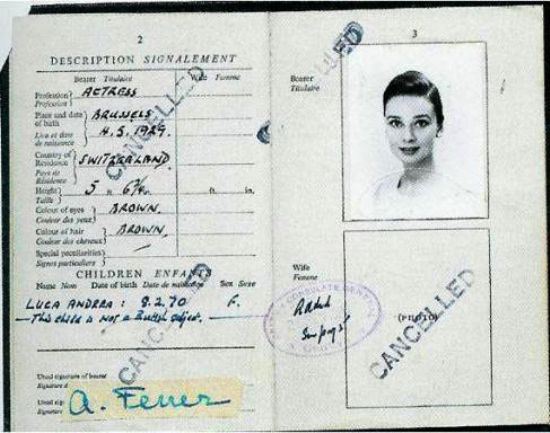 2
DESCRIPTION SIGNALEMENT
Bearer Titulaire Wife Femme
Profession Profession ACTRESS
Place and date of birth BRUSSELS
Lieu et date de naissance 4.5.1929.
Country of Residence SWITZERLAND
Pays de Résidence
Height Taille 5 ft. in.
Colour of eyes BROWN.
Couleur des yeux
Colour of hair BROWN.
Couleur des cheveux
Special peculiarities
Signes particuliers
CHILDREN ENFANTS
Name Nom Date of birth Date de naissance Sex Sexe
LUCA ANDREA: 8.2.70
This child is not a British subject.
Usual signature of bearer
Signature
Usual
Signature
A. Ferrer
CANCELLED
CANCELLED
3
Bearer
Titulaire
Wife
Femme
(PHOTO)
CONSULATE GENERAL
CANCELLED